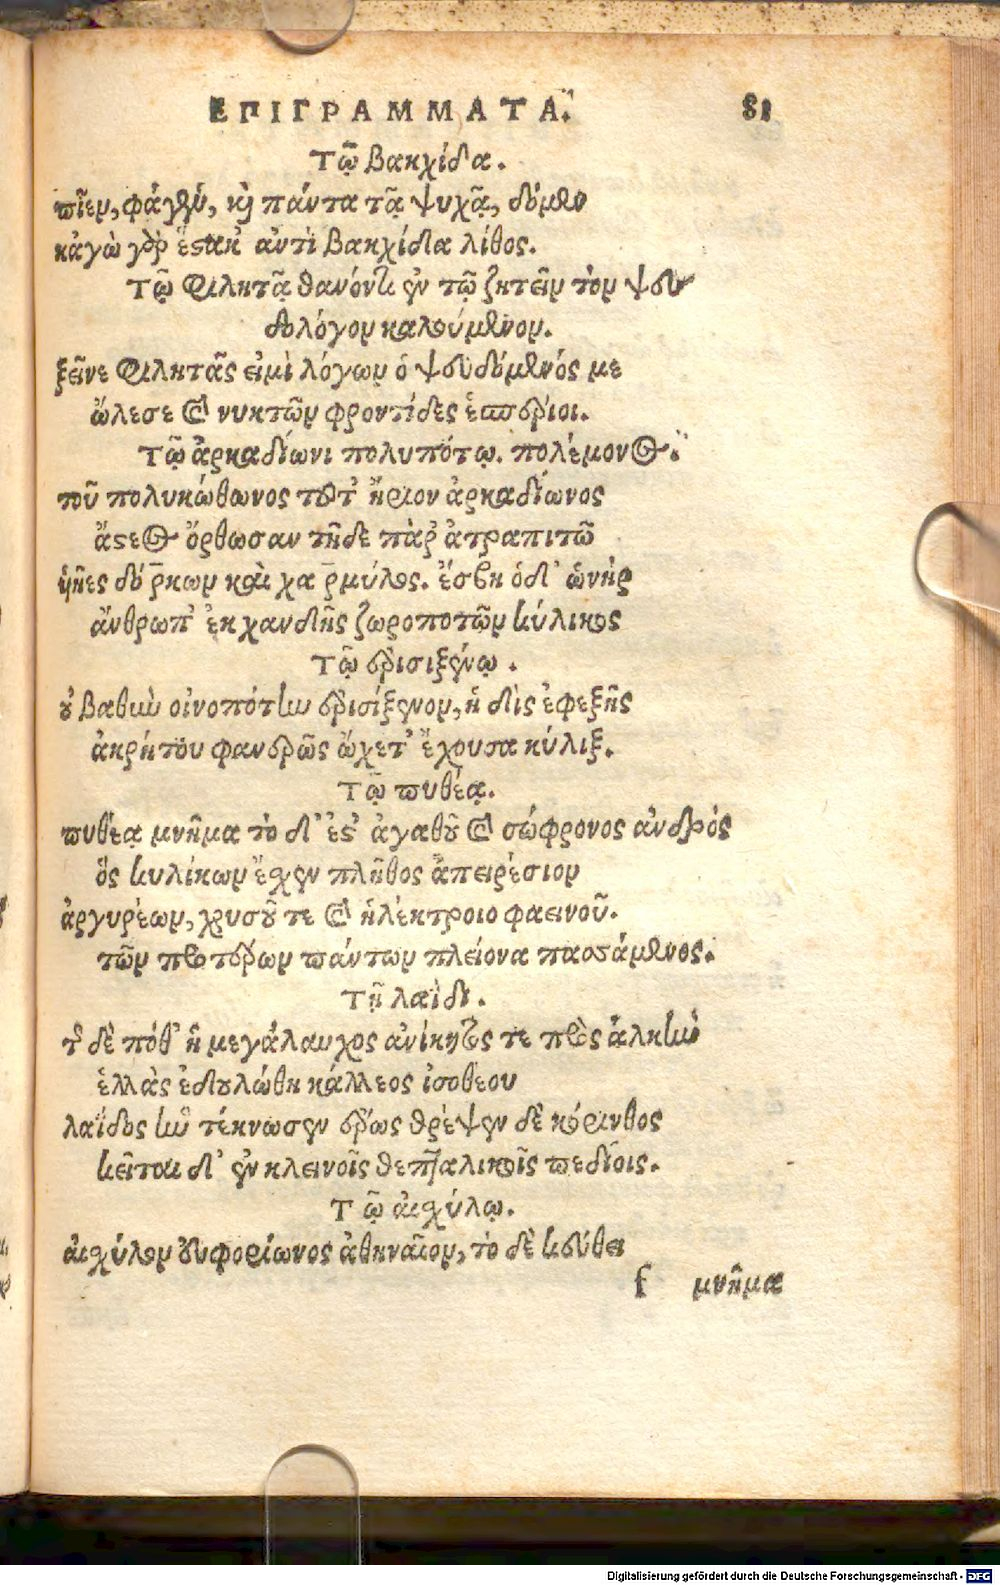 ΕΠΙΓΡΑΜΜΑΤΑ. 81
Τῷ βακχίδα.
πῖεν, φάγεν, καὶ πάντα τᾷ ψυχᾷ, δόμεν
κἀγὼ γὰρ ἕστακ' ἀντὶ βακχίδα λίθος.
Τῷ Φιλητᾷ θανόντι ἐν τῷ ζητεῖν τὸν ψευ
δολόγον καλούμενον.
ξεῖνε Φιλητᾶς εἰμὶ λόγων ὁ ψευδόμενός με
ὤλεσε καὶ νυκτῶν φροντίδες ἑσπέριοι.
Τῷ ἀρκαδίωνι πολυπότῳ. πολέμονος.
τοῦ πολυκώθωνος τοῦτ' ἠρίον ἀρκαδίωνος
ἄστεος ὄρθωσαν τῇδε παρ' ἀτραπιτῷ
ὑῆες δόρκων καὶ χαρμύλος. ἔσβη ὁδ' ὡνὴρ
ἄνθρωπ' ἐκ χανδῆς ζωροποτῶν κύλικος
Τῷ ἐρισιξένῳ.
οὐ βαθὺν οἰνοπότην ἐρισίξενον, ἡ δὶς ἐφεξῆς
ἀκρήτου φανερῶς ᾤχετ' ἔχουσα κύλιξ.
Τῷ πυθέᾳ.
πυθέᾳ μνῆμα τὸ δ' ἔστ' ἀγαθοῦ καὶ σώφρονος ἀνδρὸς
ὃς κυλίκων ἔχεν πλῆθος ἀπειρέσιον
ἀργυρέων, χρυσοῦ τε καὶ ἠλέκτροιο φαεινοῦ.
τῶν προτέρων πάντων πλείονα πασσάμενος.
Τῇ λαΐδι.
τῆς δὲ πόθ' ἡ μεγάλαυχος ἀνίκητός τε πρὸς ἀλκὴν
ἑλλὰς ἐδουλώθη κάλλεος ἰσοθέου
λαΐδος ἣν τέκνωσεν ἔρως θρέψεν δὲ κόρινθος
κεῖται δ' ἐν κλεινοῖς θετταλικοῖς πεδίοις.
Τῷ αἰσχύλῳ.
αἰσχύλον εὐφορίωνος ἀθηναῖον, τὸ δὲ κεύθει
f μνῆμα
Digitalisierung gefördert durch die Deutsche Forschungsgemeinschaft - DFG